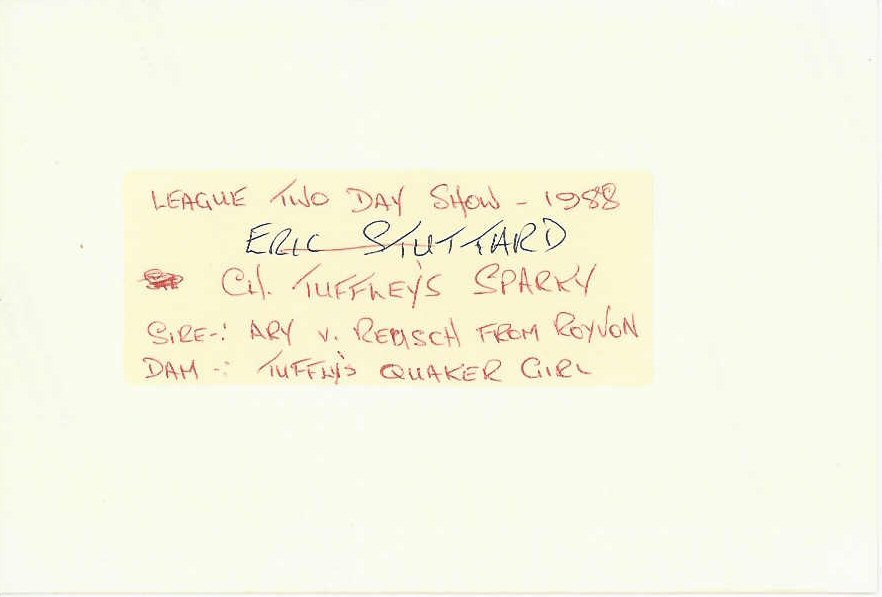 LEAGUE TWO DAY SHOW - 1988
ERIC STUTTARD
CH. TUFFLEY'S SPARKY
SIRE-: ARY V. REBISCH FROM ROYVON
DAM -: TUFFLY'S QUAKER GIRL